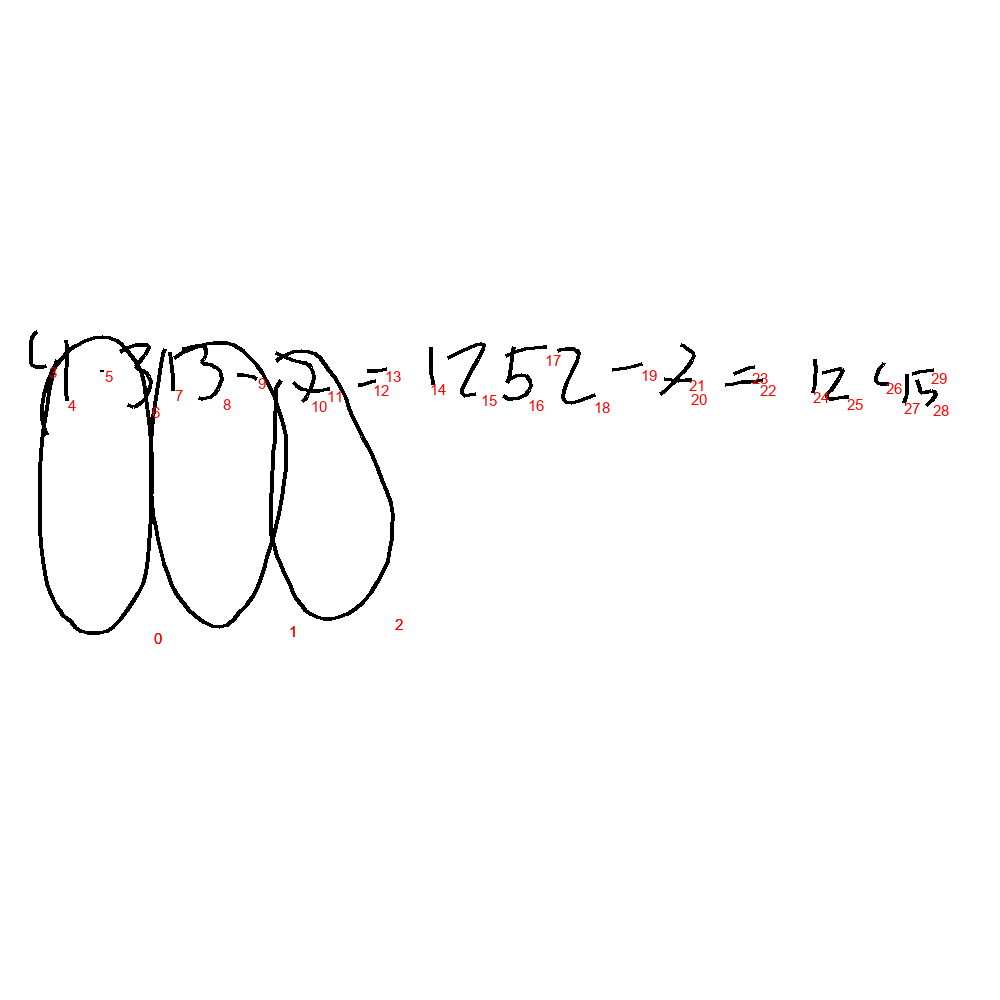 4 · 313 - 7 = 1252 - 7 = 1245
3 4 5 6 7 8 9 10 11 12 13 14 15 16 17 18 19 20 21 22 23 24 25 26 27 28 29
0 1 2